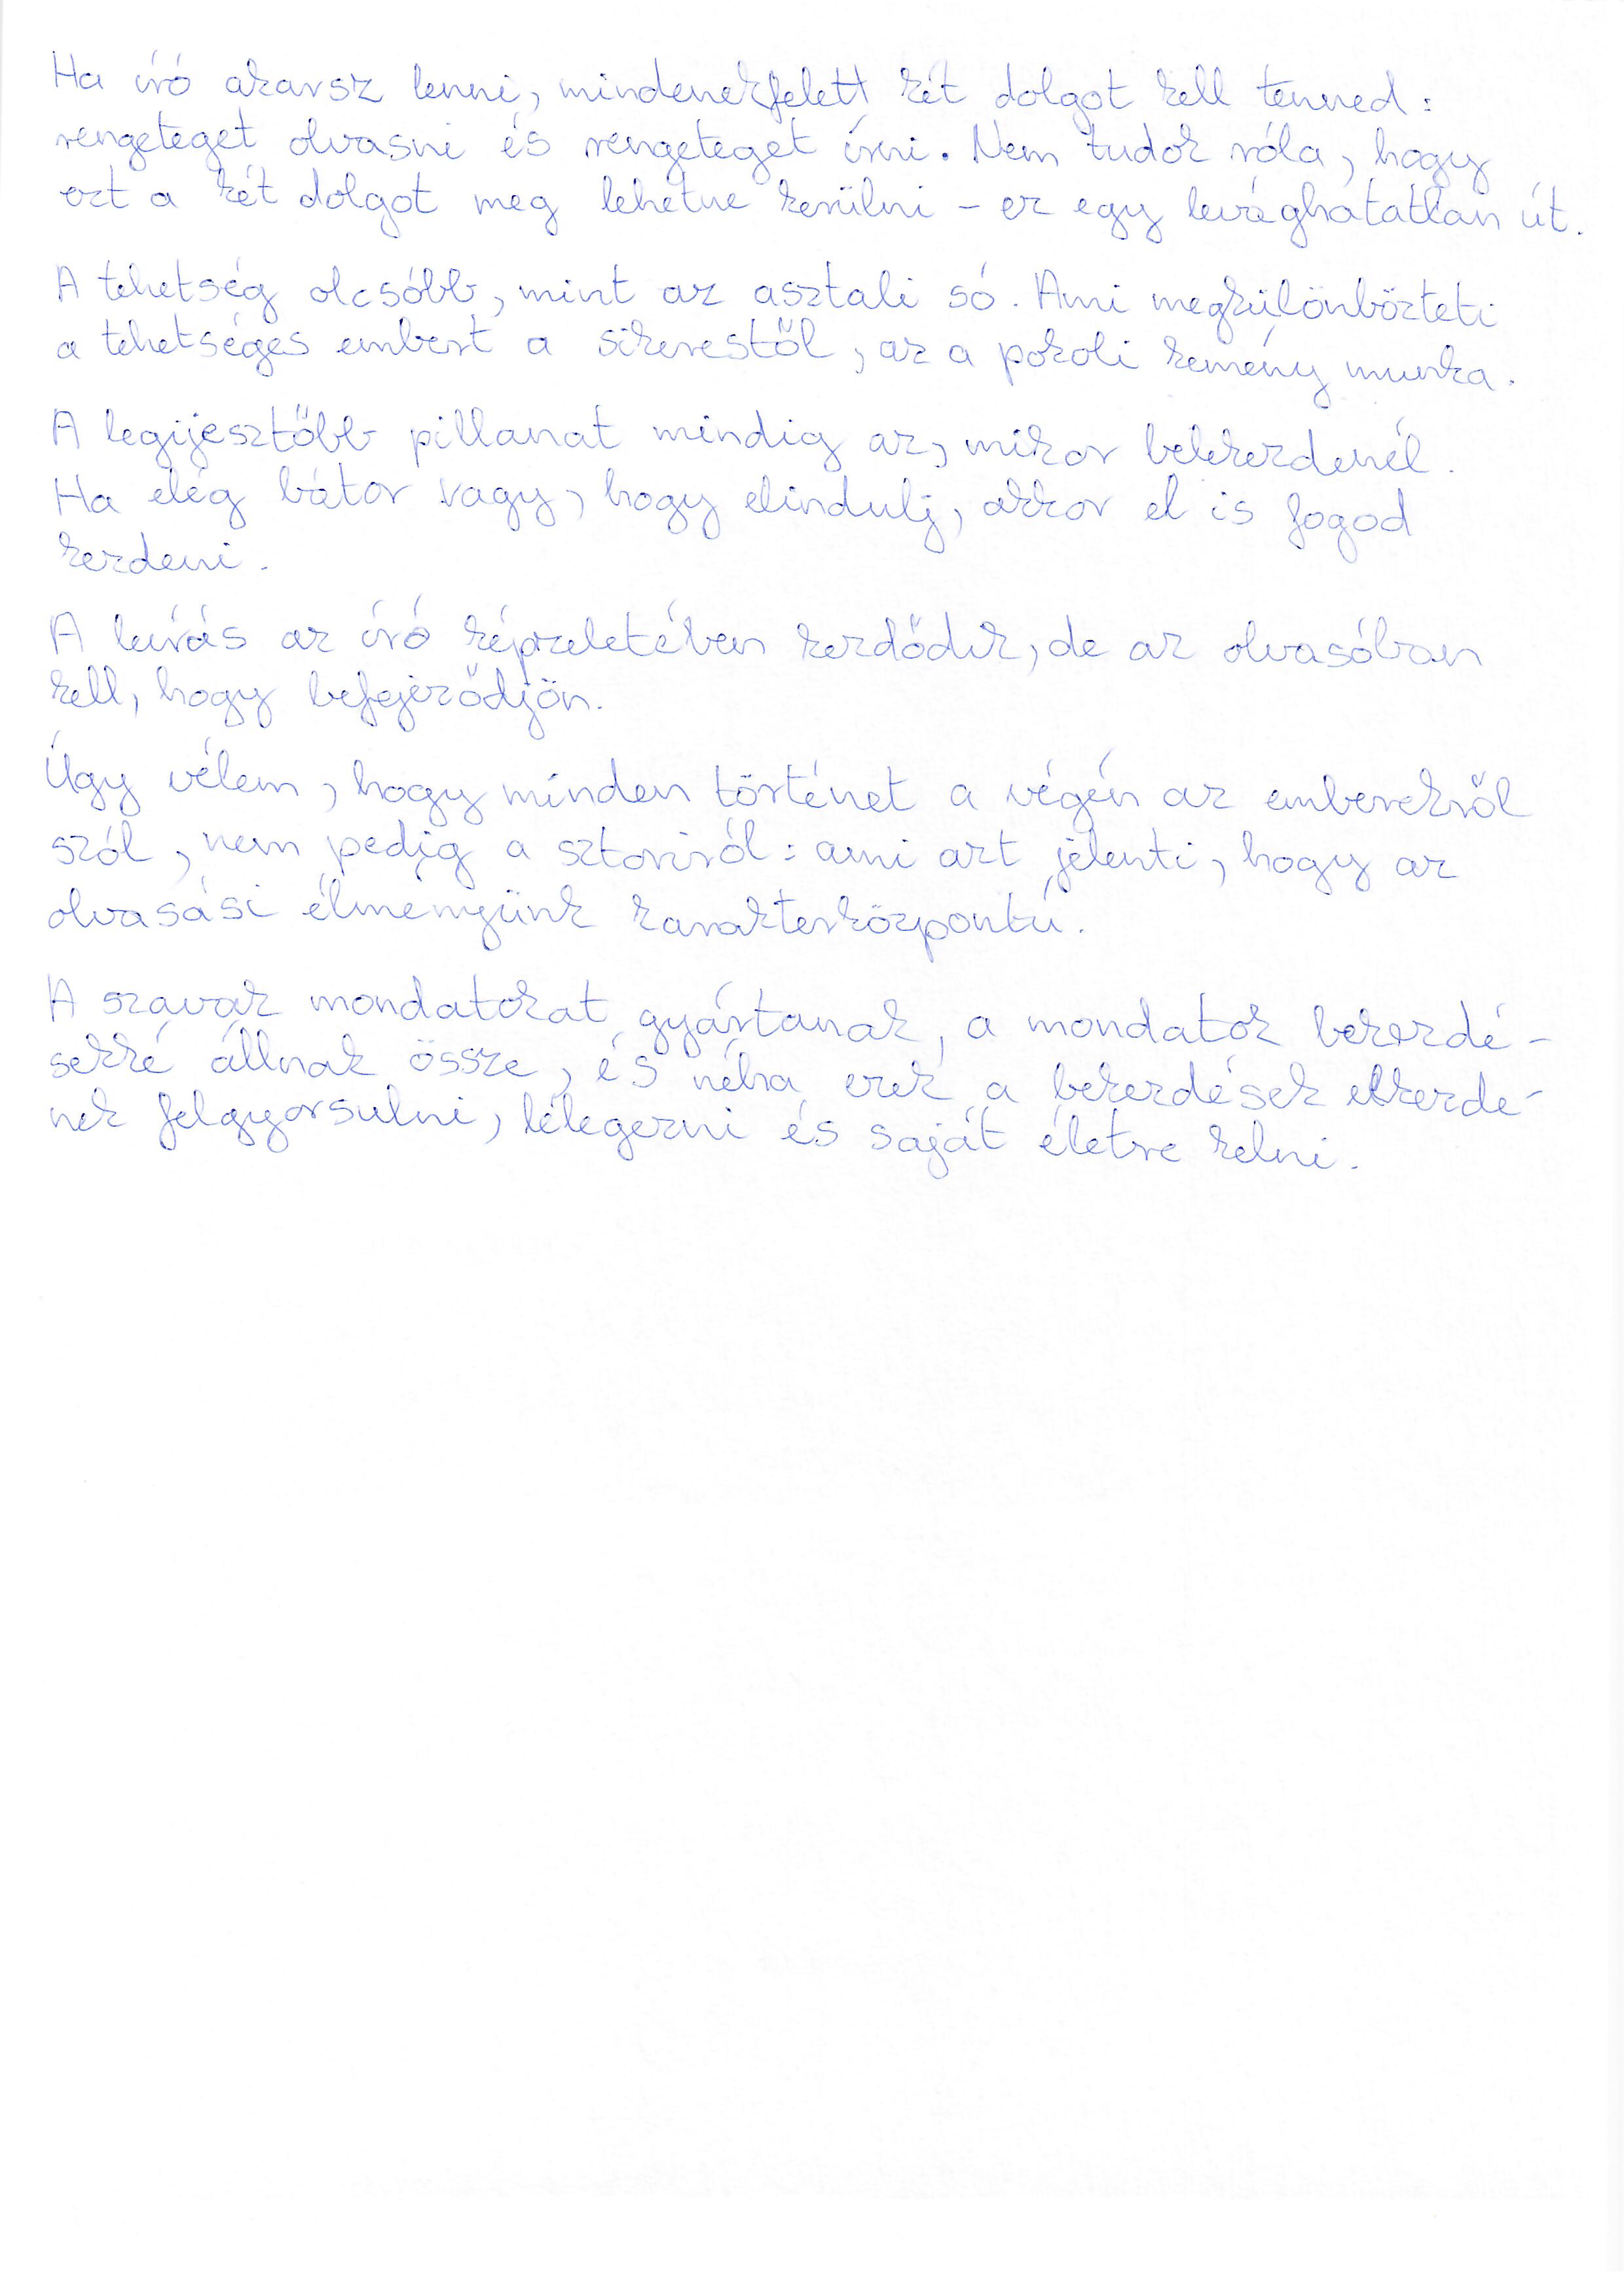 Ha író akarsz lenni, mindenekfelett két dolgot kell tenned:
rengeteget olvasni és rengeteget írni. Nem tudok róla, hogy
ezt a két dolgot meg lehetne kerülni – ez egy levághatatlan út.
A tehetség olcsóbb, mint az asztali só. Ami megkülönbözteti
a tehetséges embert a sikerestől, az a pokoli kemény munka.
A legijesztőbb pillanat mindig az, mikor belekezdenél.
Ha elég bátor vagy, hogy elindulj, akkor el is fogod
kezdeni.
A leírás az író képzeletében kezdődik, de az olvasóban
kell, hogy befejeződjön.
Úgy vélem, hogy minden történet a végén az emberekről
szól, nem pedig a sztoriról: ami azt jelenti, hogy az
olvasási élményünk karakterközpontú.
A szavak mondatokat gyártanak, a mondatok bekezdé-
sekké állnak össze, és néha ezek a bekezdések elkezde-
nek felgyorsulni, lélegezni és saját életre kelni.